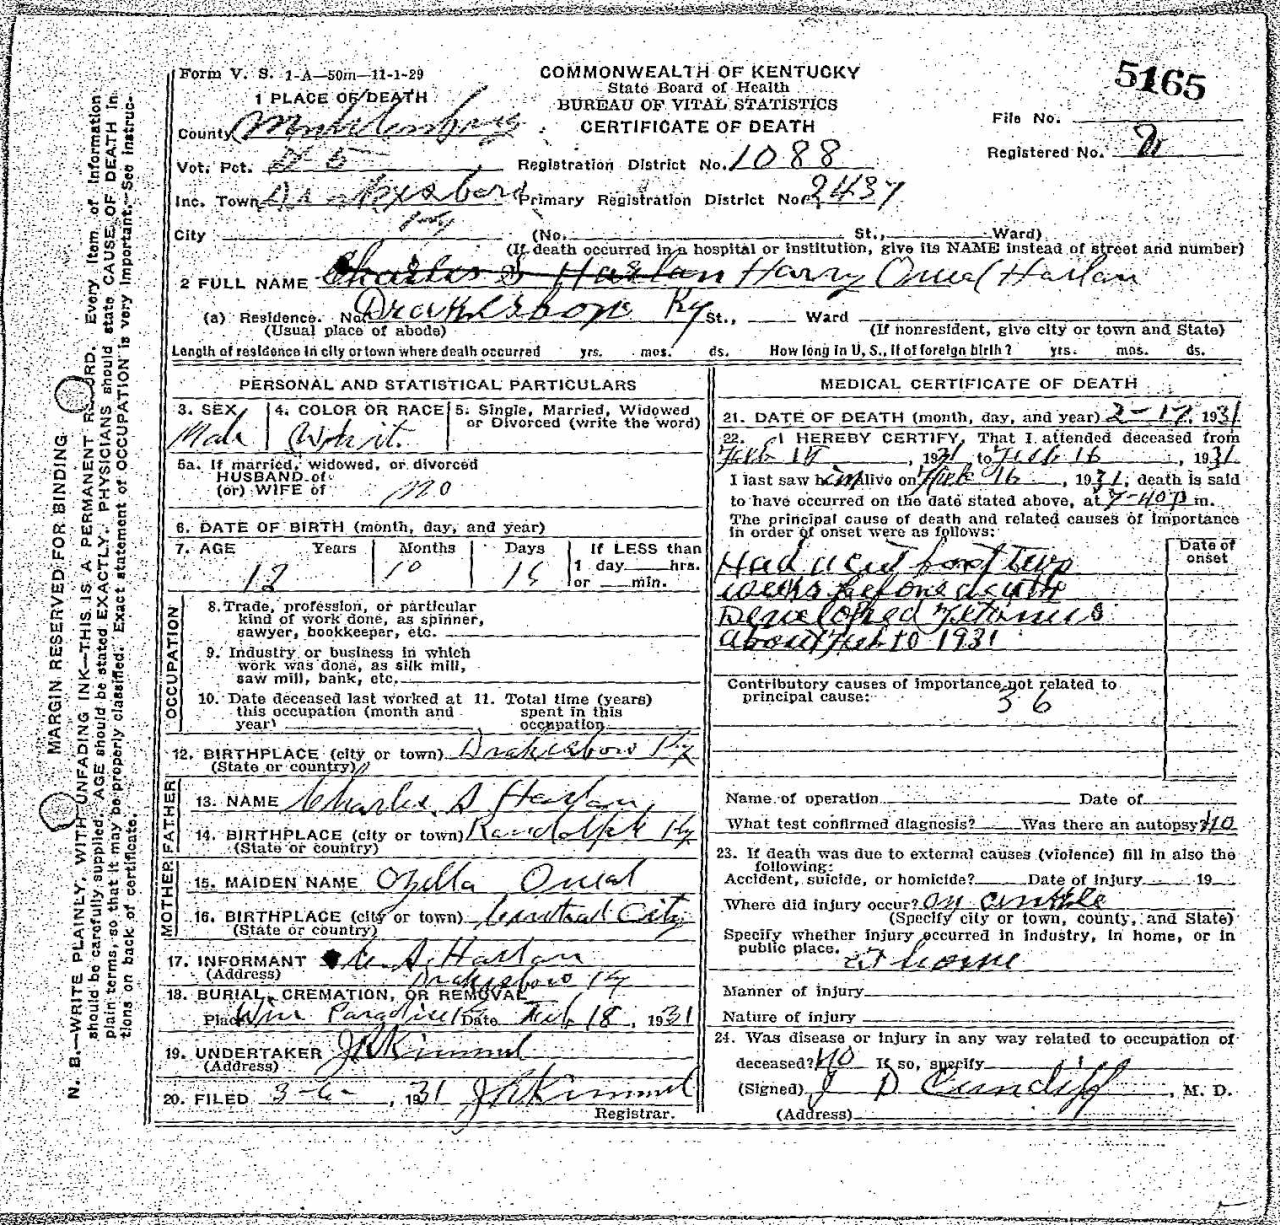 Form V. S. 1-A—50m—11-1-29
COMMONWEALTH OF KENTUCKY
State Board of Health
BUREAU OF VITAL STATISTICS
CERTIFICATE OF DEATH
5165
File No.
Registered No.
1 PLACE OF DEATH
County Muhlenburg
Vot. Pct. # 5
Registration District No. 1088
Inc. Town Drakesboro Primary Registration District No. 2437
Ky
City (No. St., Ward)
(If death occurred in a hospital or institution, give its NAME instead of street and number)
2 FULL NAME Charles S Harlan Harry Oneal Harlan
(a) Residence. No. Drakesboro Ky St., Ward
(Usual place of abode) (If nonresident, give city or town and State)
Length of residence in city or town where death occurred yrs. mos. ds. How long in U, S., if of foreign birth? yrs. mos. ds.
PERSONAL AND STATISTICAL PARTICULARS
3. SEX 4. COLOR OR RACE 5. Single, Married, Widowed
or Divorced (write the word)
Male Whit.
5a. If married, widowed, or divorced
HUSBAND of
(or) WIFE of no
6. DATE OF BIRTH (month, day, and year)
7. AGE Years Months Days If LESS than
1 day hrs.
or min.
12 10
OCCUPATION
8. Trade, profession, or particular
kind of work done, as spinner,
sawyer, bookkeeper, etc.
9. Industry or business in which
work was done, as silk mill,
saw mill, bank, etc.
10. Date deceased last worked at 11. Total time (years)
this occupation (month and spent in this
year) occupation
12. BIRTHPLACE (city or town) Drakesboro Ky
(State or country)
FATHER
13. NAME Charles S Harlan
14. BIRTHPLACE (city or town) Randolph Ky
(State or country)
MOTHER
15. MAIDEN NAME Ozella Oneal
16. BIRTHPLACE (city or town) Central City
(State or country)
17. INFORMANT C S Harlan
(Address) Drakesboro Ky
18. BURIAL, CREMATION, OR REMOVAL
Place Paradise Ky Date Feb 18, 1931
19. UNDERTAKER J R Kimmel
(Address)
20. FILED 3-6-, 1931 J R Kimmel
Registrar.
MEDICAL CERTIFICATE OF DEATH
21. DATE OF DEATH (month, day, and year) 2-17, 1931
22. I HEREBY CERTIFY, That I attended deceased from
Feb, 1931 to Feb 16, 1931
I last saw him alive on Feb 16, 1931, death is said
to have occurred on the date stated above, at 7-40 p m.
The principal cause of death and related causes of importance
in order of onset were as follows:
Date of
onset
Had a cut foot two
weeks before death
Developed Tetanus
about Feb 10 1931
Contributory causes of importance not related to
principal cause:
56
Name of operation Date of
What test confirmed diagnosis? Was there an autopsy? No
23. If death was due to external causes (violence) fill in also the
following:
Accident, suicide, or homicide? Date of injury 19
Where did injury occur? on ankle
(Specify city or town, county, and State)
Specify whether injury occurred in industry, in home, or in
public place. at home
Manner of injury
Nature of injury
24. Was disease or injury in any way related to occupation of
deceased? No If so, specify
(Signed) J D Cundiff, M. D.
(Address)
MARGIN RESERVED FOR BINDING
N. B.—WRITE PLAINLY, WITH UNFADING INK—THIS IS A PERMANENT RECORD. Every item of information
should be carefully supplied. AGE should be stated EXACTLY. PHYSICIANS should state CAUSE OF DEATH in
plain terms, so that it may be properly classified. Exact statement of OCCUPATION is very important. See instruc-
tions on back of certificate.